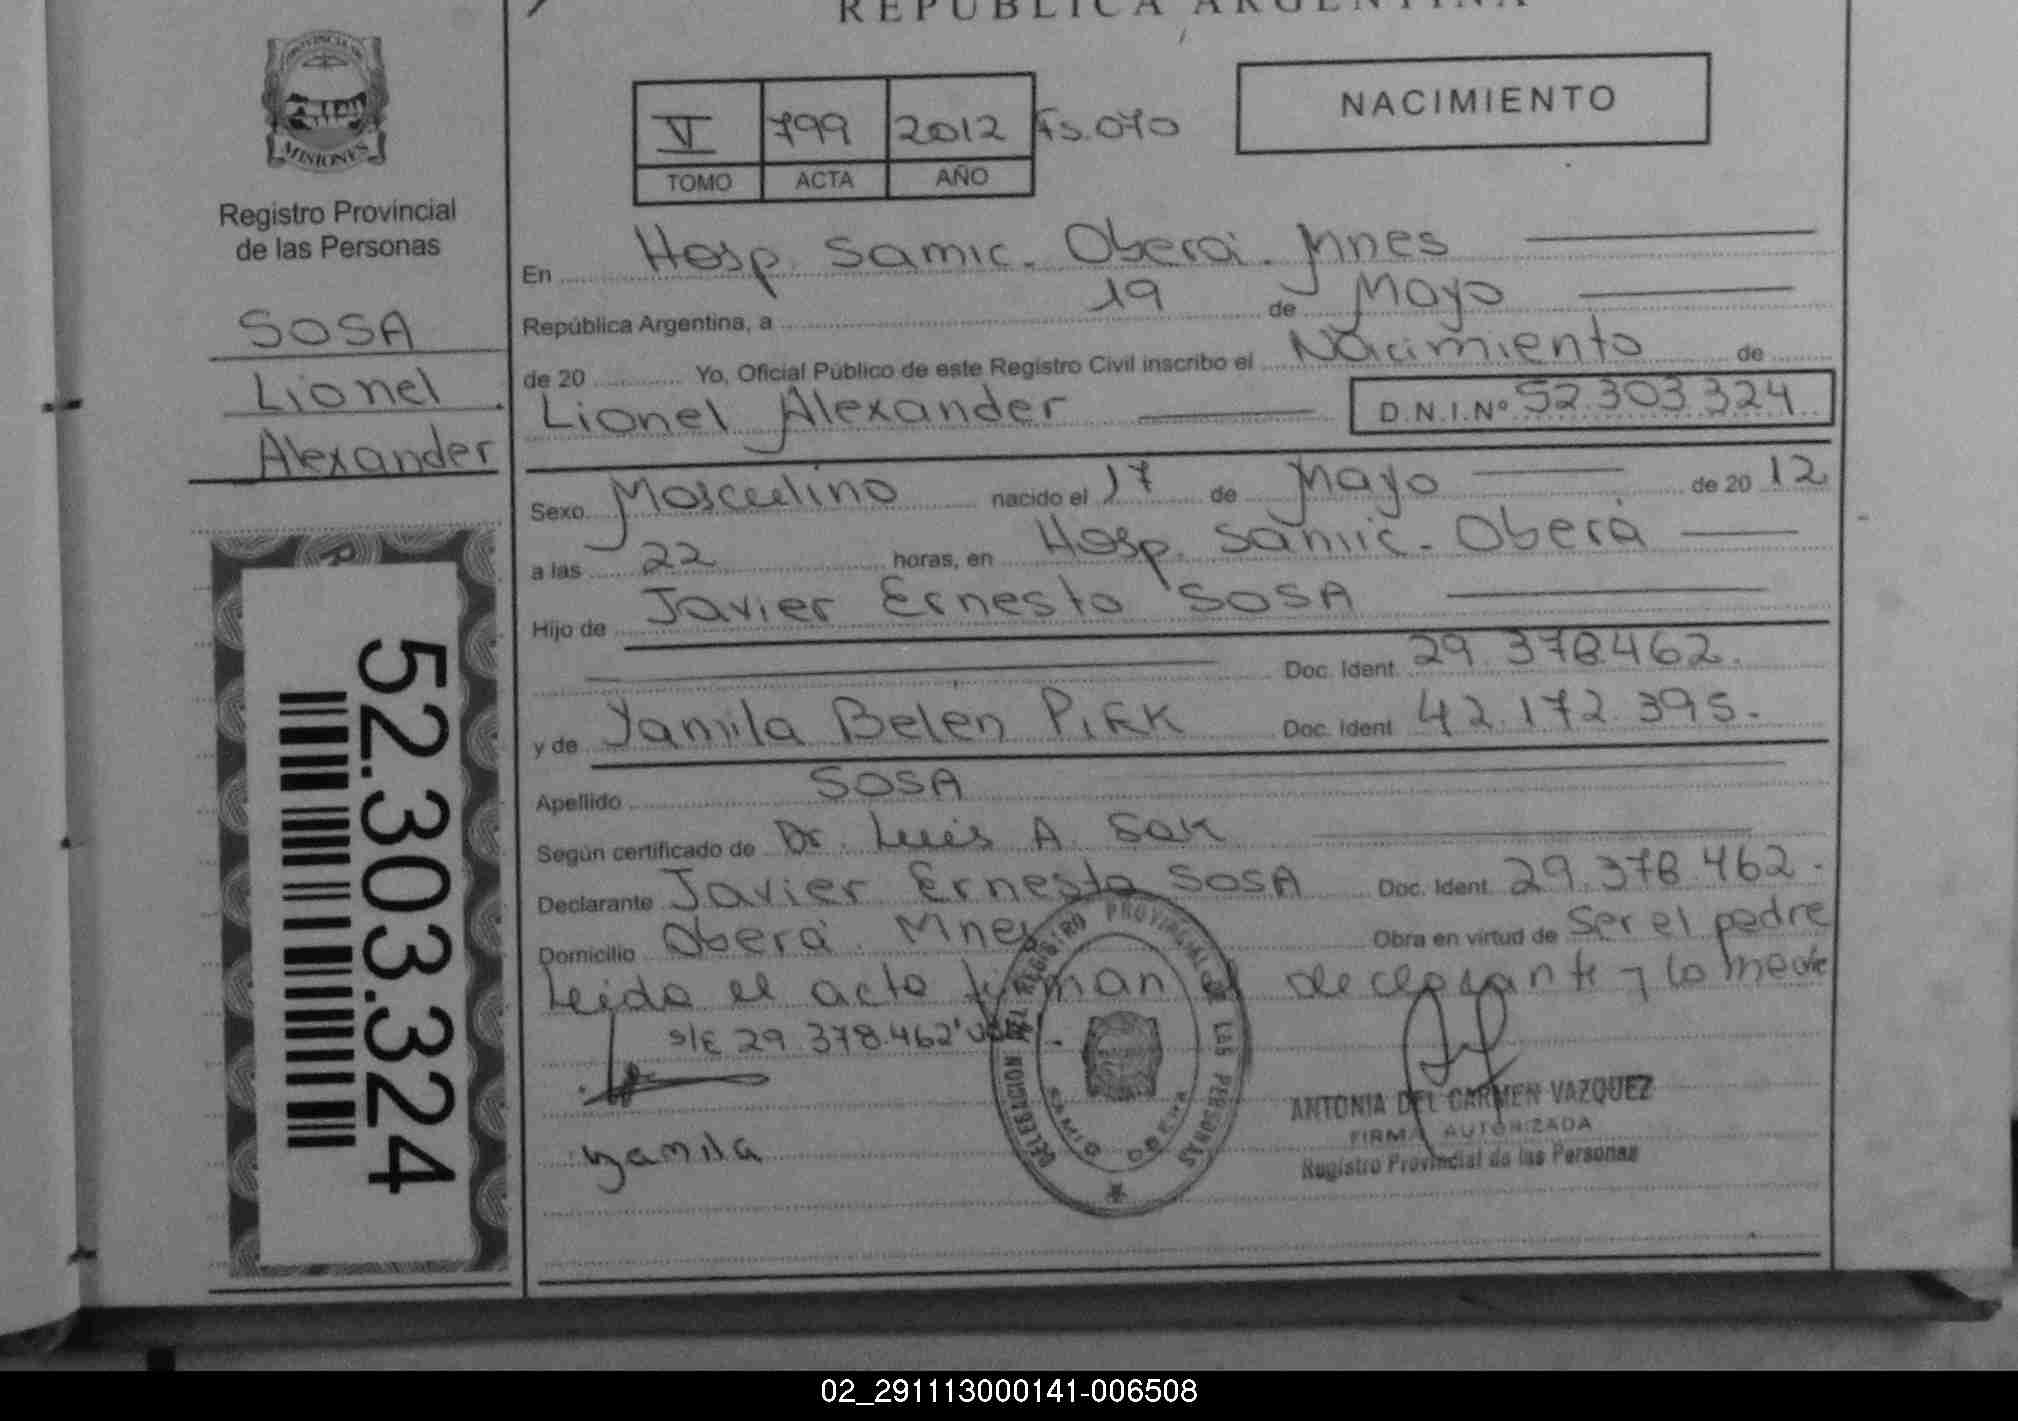 REPUBLICA ARGENTINA
PROVINCIA DE
MISIONES
Registro Provincial
de las Personas
SOSA
Lionel
Alexander
52.303.324
V 799 2012 Fs. 070
TOMO ACTA AÑO
NACIMIENTO
En Hosp. Samic. Oberá. Mnes
República Argentina, a 19 de Mayo
de 20 Yo, Oficial Público de este Registro Civil inscribo el Nacimiento de
Lionel Alexander D.N.I.Nº 52.303.324
Sexo Masculino nacido el 17 de Mayo de 20 12
a las 22 horas, en Hosp. Samic. Oberá
Hijo de Javier Ernesto SOSA
Doc. Ident. 29.378.462.
y de Yamila Belen Pirk Doc. Ident 42.172.395.
Apellido SOSA
Según certificado de Dr. Luis A. Sak
Declarante Javier Ernesto SOSA Doc. Ident. 29.378.462.
Domicilio Oberá. Mnes Obra en virtud de Ser el padre
Leida el acta firman el declarante y la madre
s/E 29.378.462
Yamila
DELEGACION DEL REGISTRO PROVINCIAL DE LAS PERSONAS
ANTONIA DEL CARMEN VAZQUEZ
FIRMA AUTORIZADA
Registro Provincial de las Personas
02_291113000141-006508